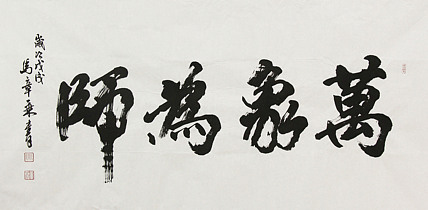 萬象為師
歲次戊戌
馬章乘書